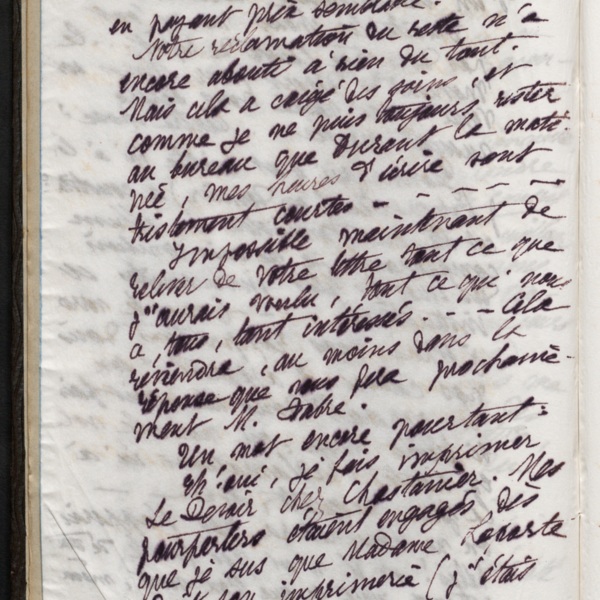 en payant prix semblable.
Notre réclamation du reste n'a
encore abouti à rien du tout.
Mais cela a exigé des soins, et
comme je ne puis toujours rester
au bureau que durant la mati-
née, mes heures d'écrire sont
tristement courtes - - - - -
Impossible maintenant de
relever de votre lettre tout ce que
j'aurais voulu, tout ce qui nous
a, tous, tant intéressés. - - - Cela
reviendra, au moins dans la
réponse que vous fera prochaine-
ment M. Fabre.
Un mot encore pourtant:
Eh! oui, je fais imprimer
Le Devoir chez Chastanier. Mes
pourparlers étaient engagés dès
que je sus que Madame Lacoste
son imprimerie (j'étais